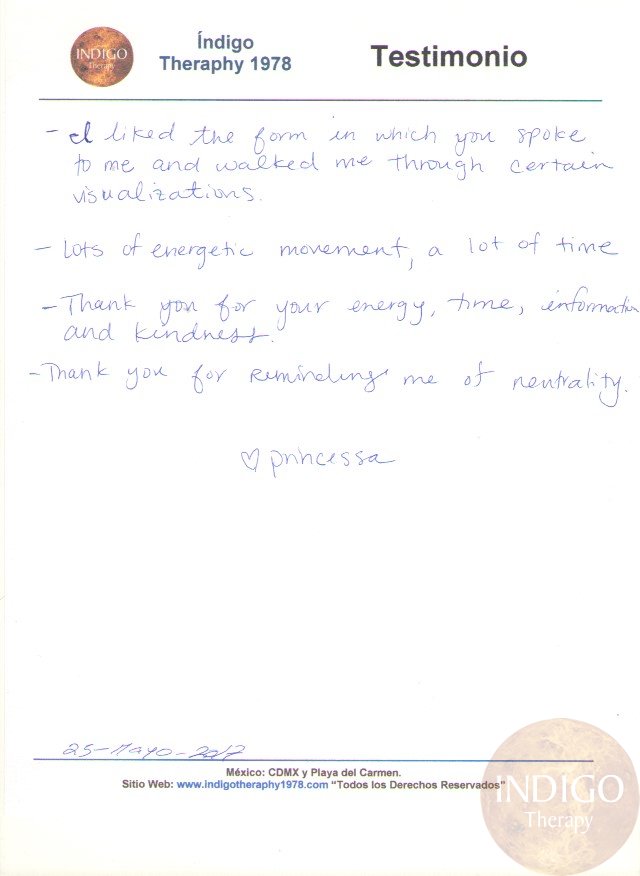 INDIGO
Therapy
Índigo
Theraphy 1978
Testimonio
- I liked the form in which you spoke
to me and walked me through certain
visualizations.
- Lots of energetic movement, a lot of time
- Thank you for your energy, time, information
and kindness.
- Thank you for reminding me of neutrality.
♡ princessa
25-Mayo-2017
México: CDMX y Playa del Carmen.
Sitio Web: www.indigotheraphy1978.com "Todos los Derechos Reservados"
INDIGO
Therapy